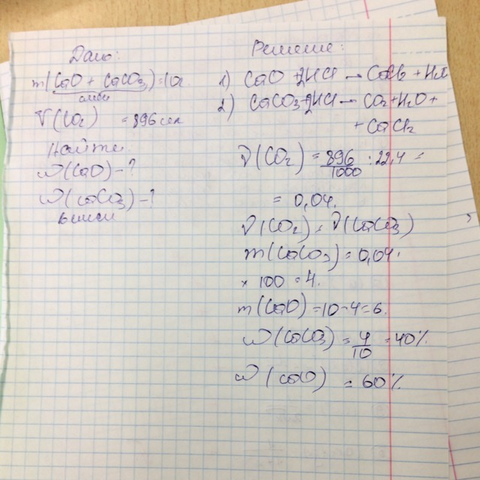 Дано:
m(CaO + CaCO3) = 10г
смеси
V(CO2) = 896 мл
Найти
ω(CaO) - ?
ω(CaCO3) - ?
в смеси
Решение:
1) CaO + 2HCl → CaCl2 + H2O
2) CaCO3 + 2HCl → CO2 + H2O +
+ CaCl2
ν(CO2) = 896/1000 : 22,4 =
= 0,04.
ν(CO2) = ν(CaCO3)
m(CaCO3) = 0,04 ·
× 100 = 4.
m(CaO) = 10 - 4 = 6.
ω(CaCO3) = 4/10 = 40%
ω(CaO) = 60%